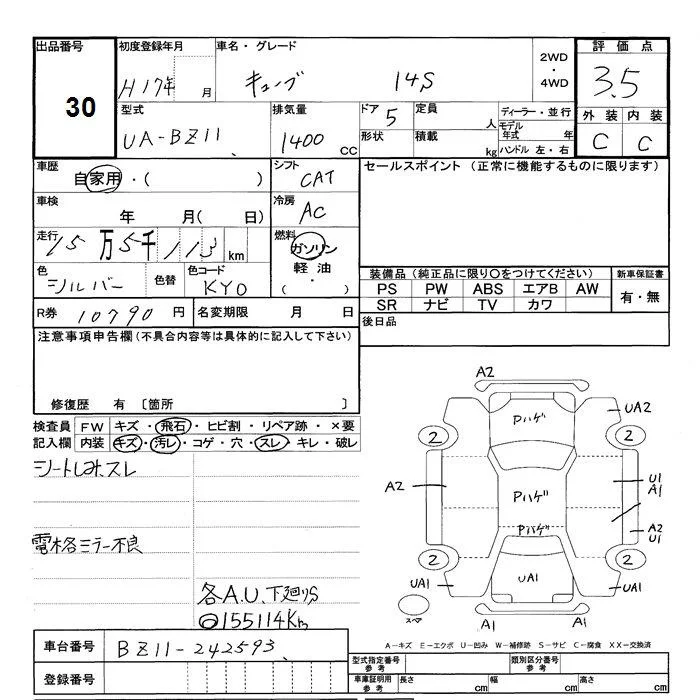 出品番号 初度登録年月 車名・グレード 評価点
30 H17年 月 キューブ 14S 2WD・4WD 3.5
型式 排気量 ドア 5 定員 人 ディーラー・並行 外装 内装
UA-BZ11 1400 CC 形状 積載 kg モデル年式 年 ハンドル 左・右 C C
車歴 自家用・( ) シフト CAT セールスポイント (正常に機能するものに限ります)
車検 年 月( 日) 冷房 AC
走行 15万5千113 km 燃料 ガソリン 軽油 ・( )
色 シルバー 色替 色コード KY0
装備品 (純正品に限り○をつけてください) 新車保証書
PS PW ABS エアB AW 有・無
SR ナビ TV カワ
R券 10790 円 名変期限 月 日 後日品
注意事項申告欄 (不具合内容等は具体的に記入して下さい)
修復歴 有 〔箇所 〕
検査員 FW キズ・飛石・ヒビ割・リペア跡・×要
記入欄 内装 キズ・汚レ・コゲ・穴・スレ・キレ・破レ
シートしみ.スレ
電格ミラー不良
各A.U.下廻りS
155114Km
A2
Pハゲ UA2
2 2
A2 Pハゲ U1 A1
Pハゲ A2 U1
2 2
UA1 UA1 UA1
スペア A1 A1
A-キズ E-エクボ U-凹み W-補修跡 S-サビ C-腐食 XX-交換済
車台番号 BZ11-242593
型式指定番号 参考 類別区分番号 参考
登録番号 車庫証明用 参考 長さ cm 幅 cm 高さ cm